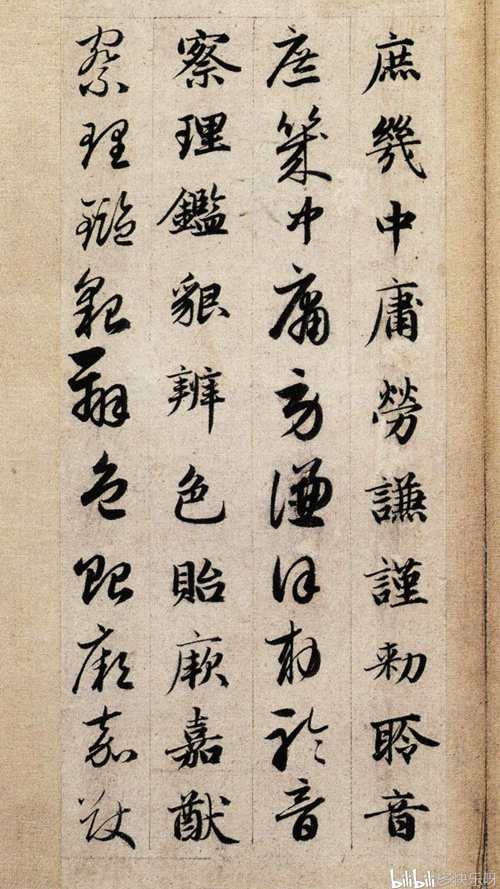 庶幾中庸勞謙謹勑聆音
庶幾中庸勞謙謹勑聆音
察理鑑貌辨色貽厥嘉猷
察理鑑貌辨色貽厥嘉猷
bilibili 快乐呀